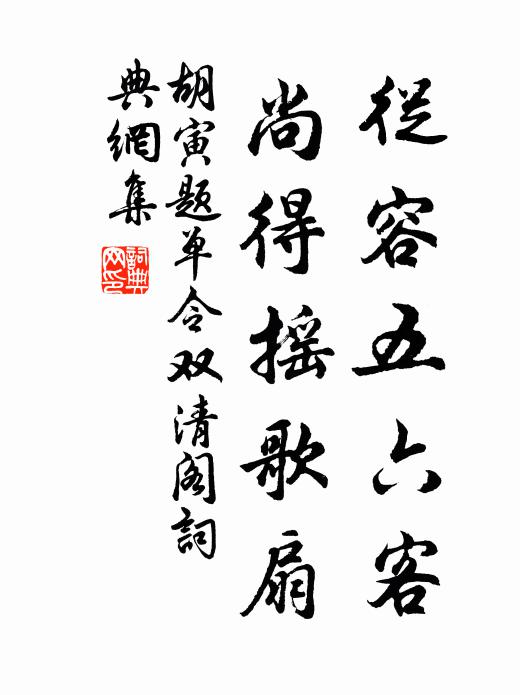 從容五六客
尚得摇歌扇
胡寅题单令双清阁詞
典網集
詞典网印